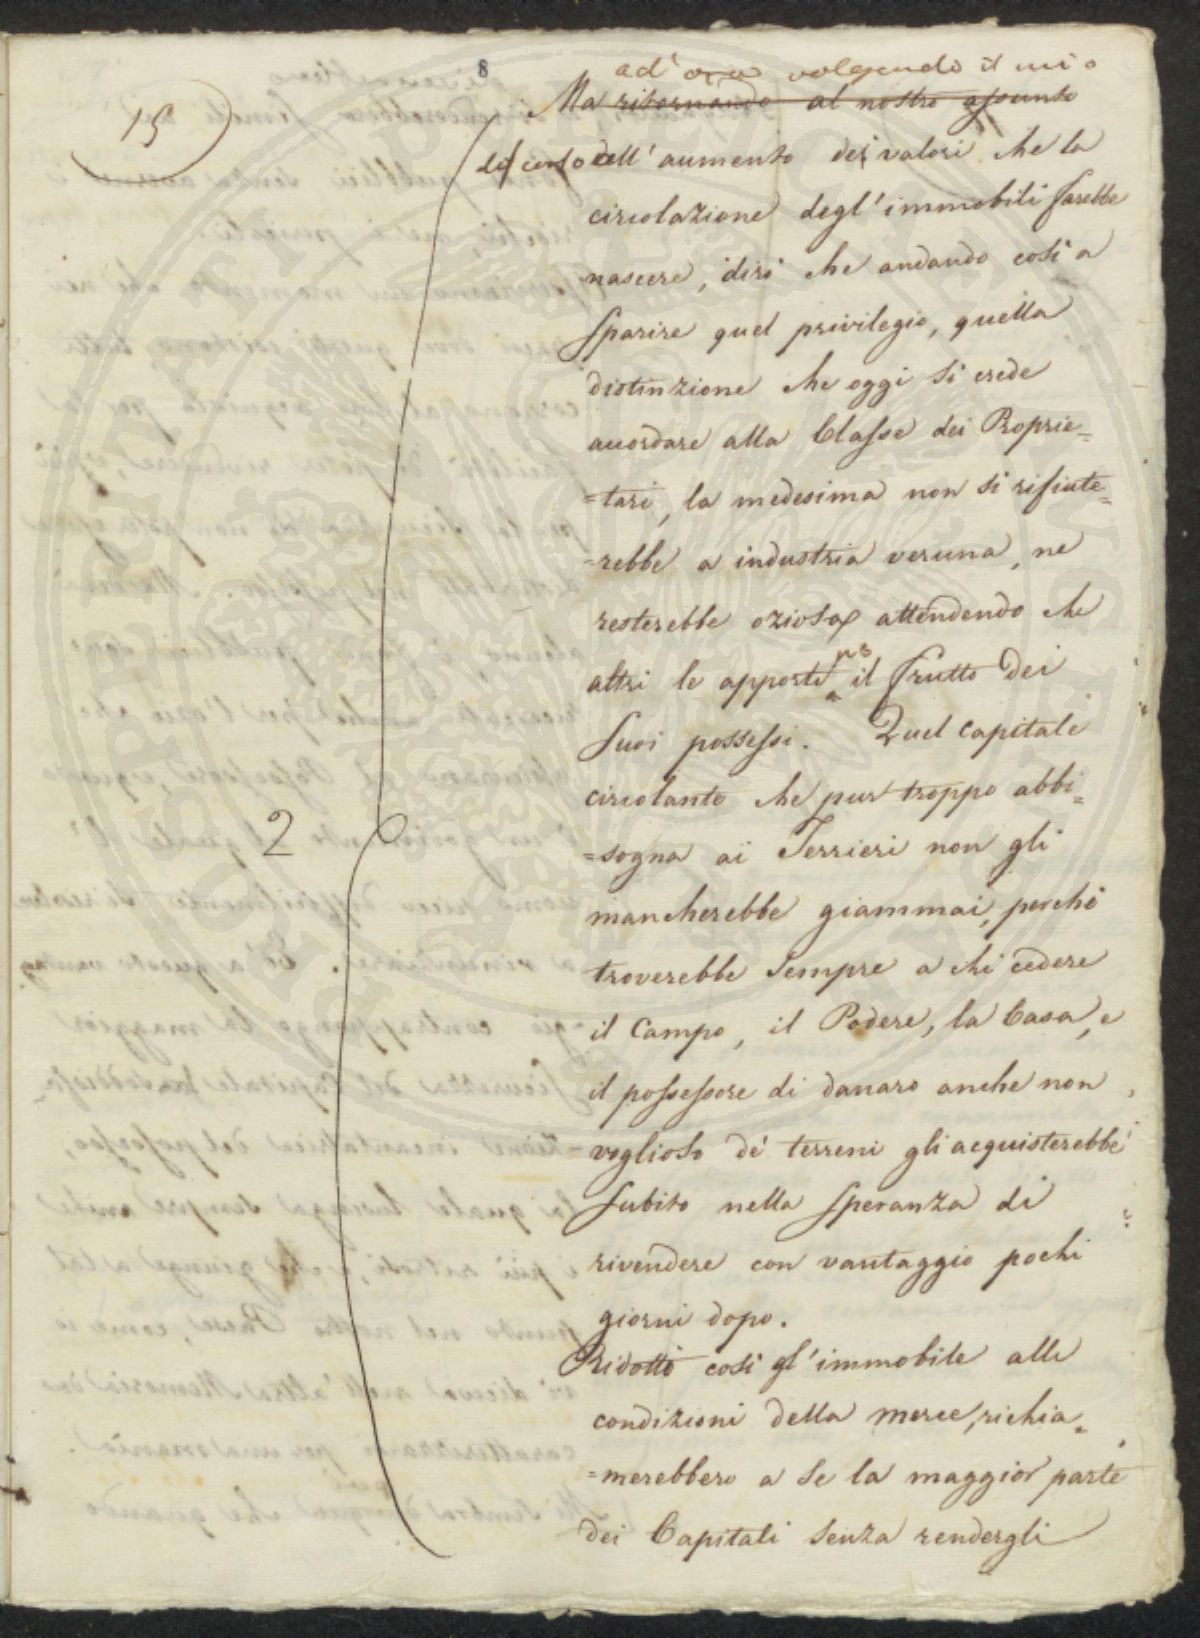 8
15
ad' ora volgendo il mio
Ma ritornando al nostro assunto
discorso dell' aumento dei valori che la
circolazione degl' immobili farebbe
nascere, dirò che andando così a
sparire quel privilegio, quella
distinzione che oggi si crede
accordare alla Classe dei Proprie=
=tari, la medesima non si rifiute=
=rebbe a industria veruna, ne
resterebbe oziosa attendendo che
altri le apporti il frutto dei
suoi possessi. Quel capitale
circolante che pur troppo abbi=
=sogna ai Terrieri non gli
2
mancherebbe giammai, perchè
troverebbe sempre a chi cedere
il Campo, il Podere, la Casa, e
il possessore di danaro anche non
voglioso de' terreni gli acquisterebbe
subito nella speranza di
rivendere con vantaggio pochi
giorni dopo.
Ridotto così gl' immobile alle
condizioni della merce, richia=
=merebbero a se la maggior parte
dei Capitali senza rendergli